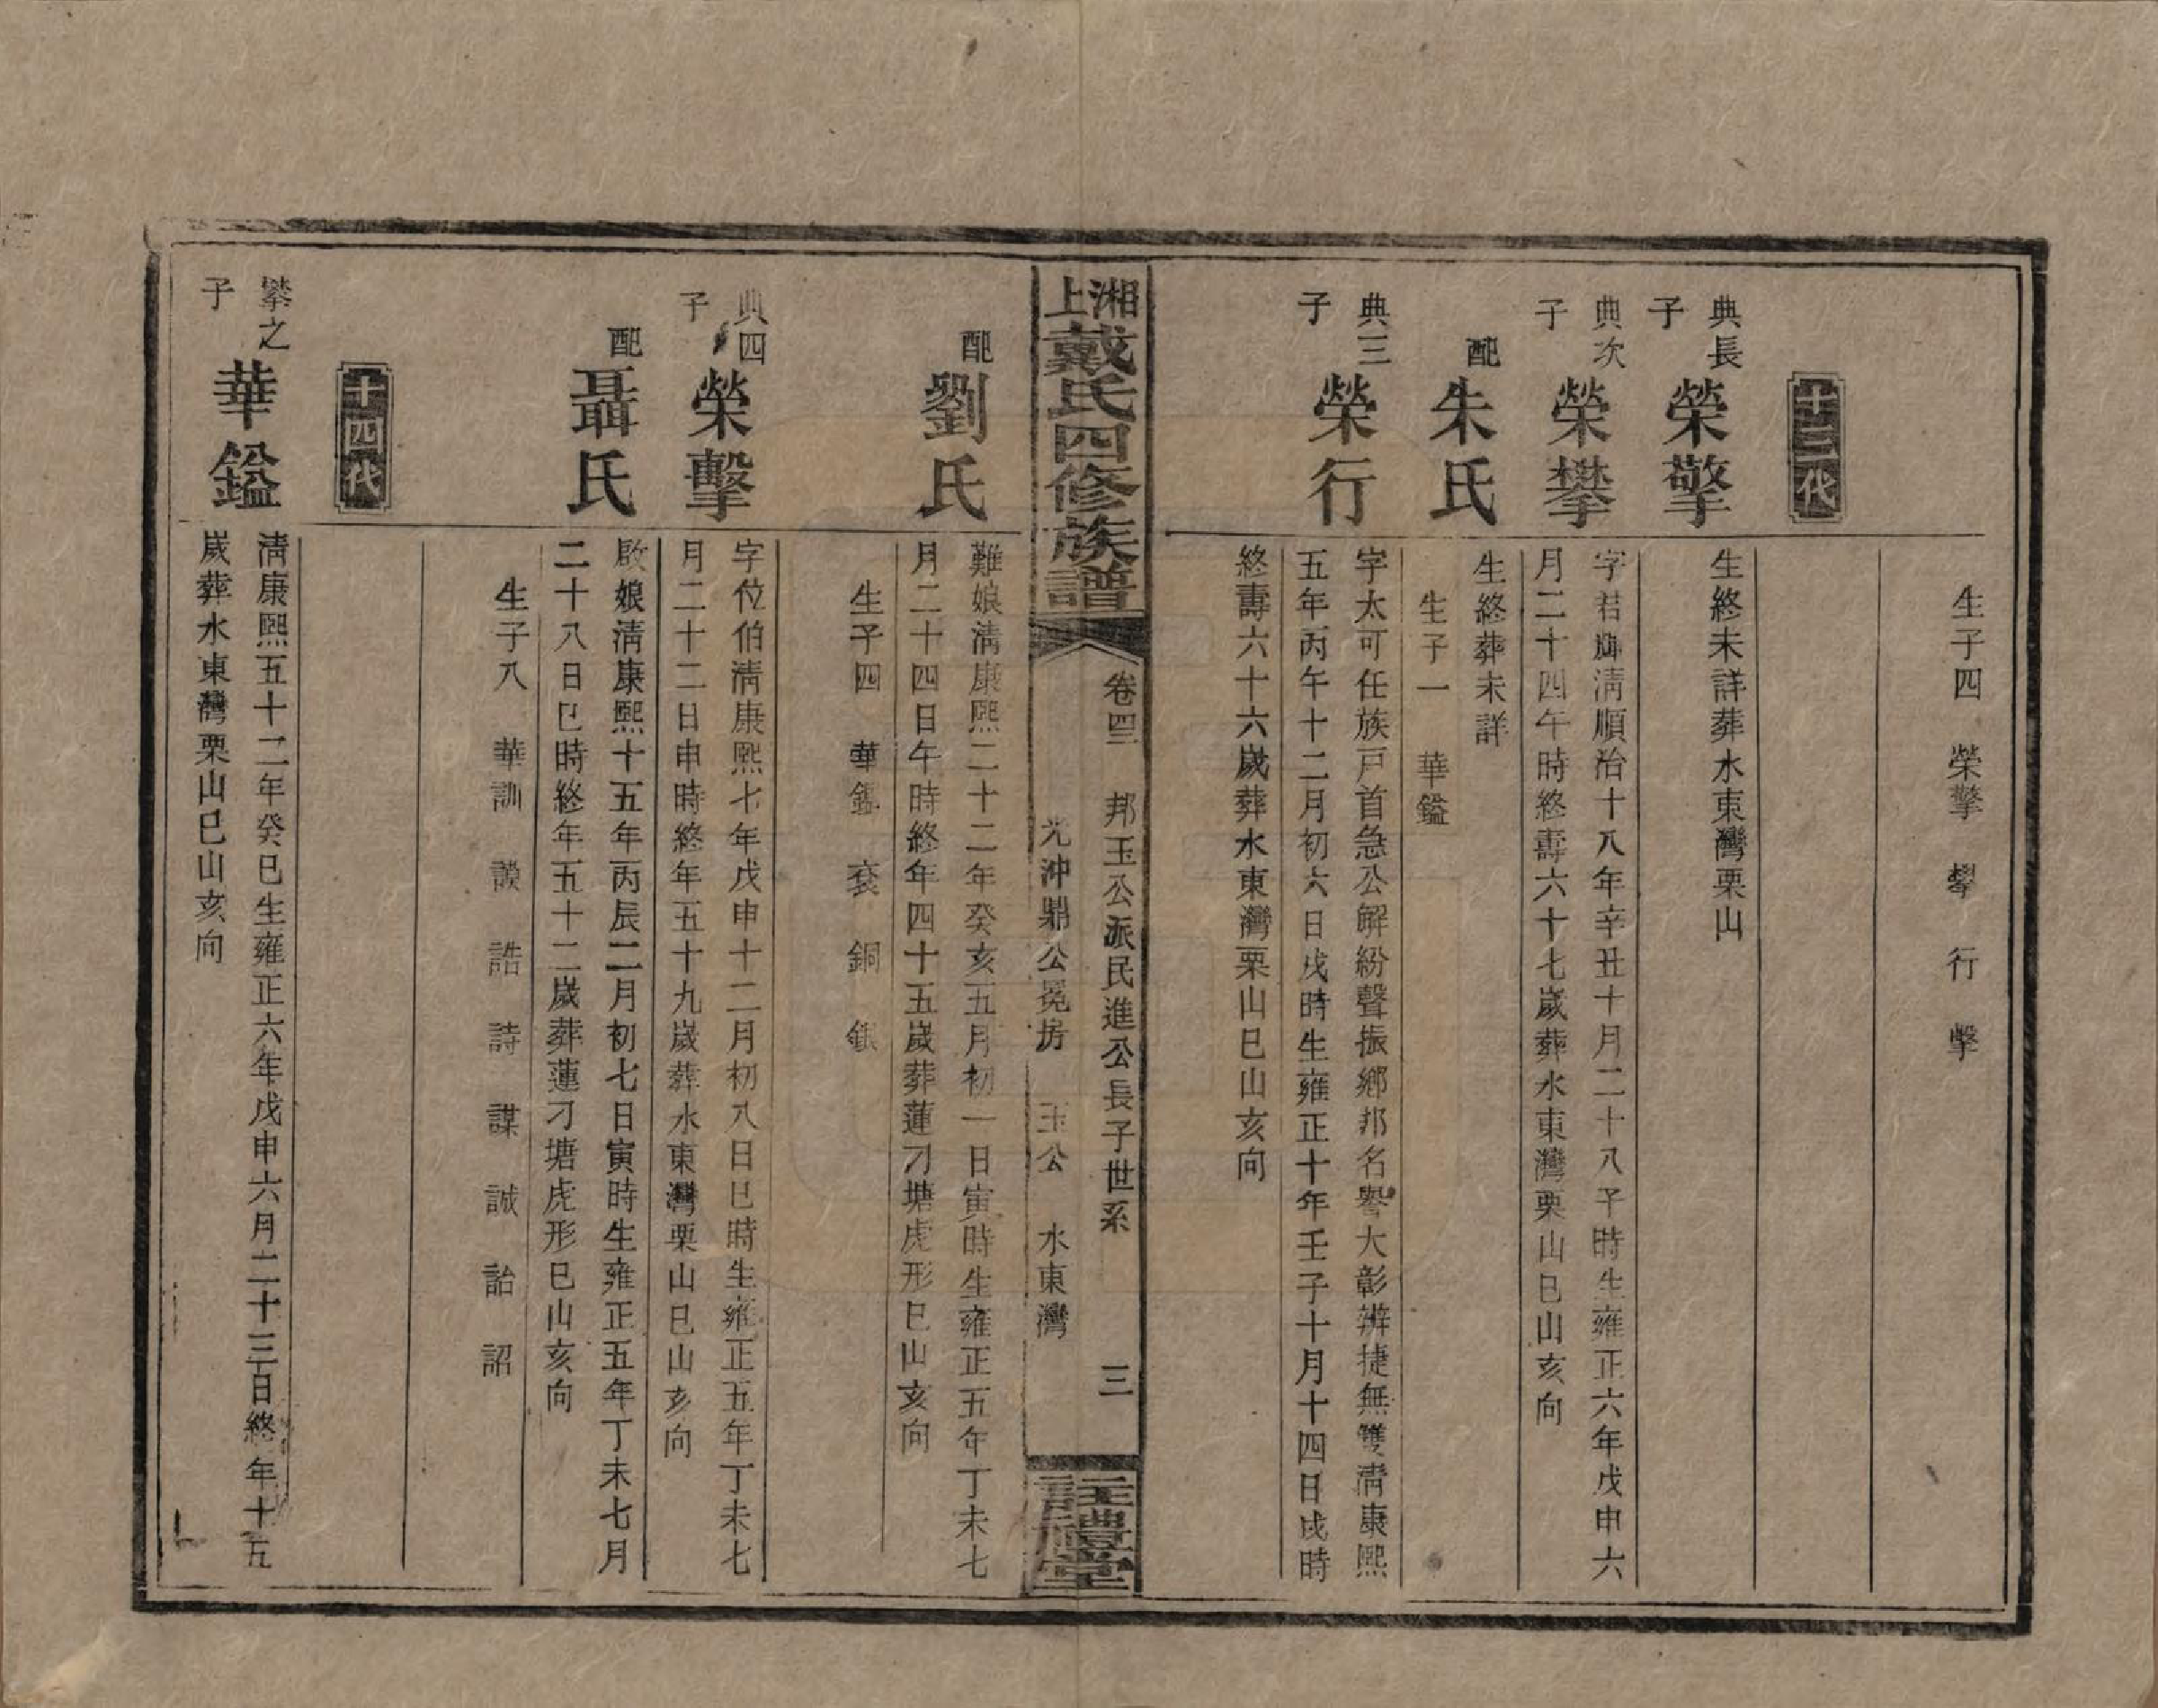 生子四　榮擎　攀　行　擊
十三代
典長子
榮擎
生終未詳葬水東灣栗山
典次子
榮攀
字君輝淸順治十八年辛丑十月二十八子時生雍正六年戊申六
月二十四午時終壽六十七歲葬水東灣栗山巳山亥向
配
朱氏
生終葬未詳
生子一　華鎰
典三子
榮行
字太可任族戸首急公解紛聲振鄕邦名譽大彰辨捷無雙淸康熙
五年丙午十二月初六日戌時生雍正十年壬子十月十四日戌時
終壽六十六歲葬水東灣栗山巳山亥向
湘上戴氏四修族譜
卷四　邦玉公派民進公長子世系　三
光沖鼎公冕房　玉公　水東灣
註禮堂
配
劉氏
難娘淸康熙二十二年癸亥五月初一日寅時生雍正五年丁未七
月二十四日午時終年四十五歲葬蓮刁塘虎形巳山亥向
生子四　華　袞　銅　銀
典四子
榮擊
字位伯淸康熙七年戊申十二月初八日巳時生雍正五年丁未七
月二十二日申時終年五十九歲葬水東灣栗山巳山亥向
配
聶氏
啟娘淸康熙十五年丙辰二月初七日寅時生雍正五年丁未七月
二十八日巳時終年五十二歲葬蓮刁塘虎形巳山亥向
生子八　華訓　謨　誥　詩　謀　誠　詒　詔
十四代
攀之子
華鎰
淸康熙五十二年癸巳生雍正六年戊申六月二十三日終年十五
歲葬水東灣栗山巳山亥向